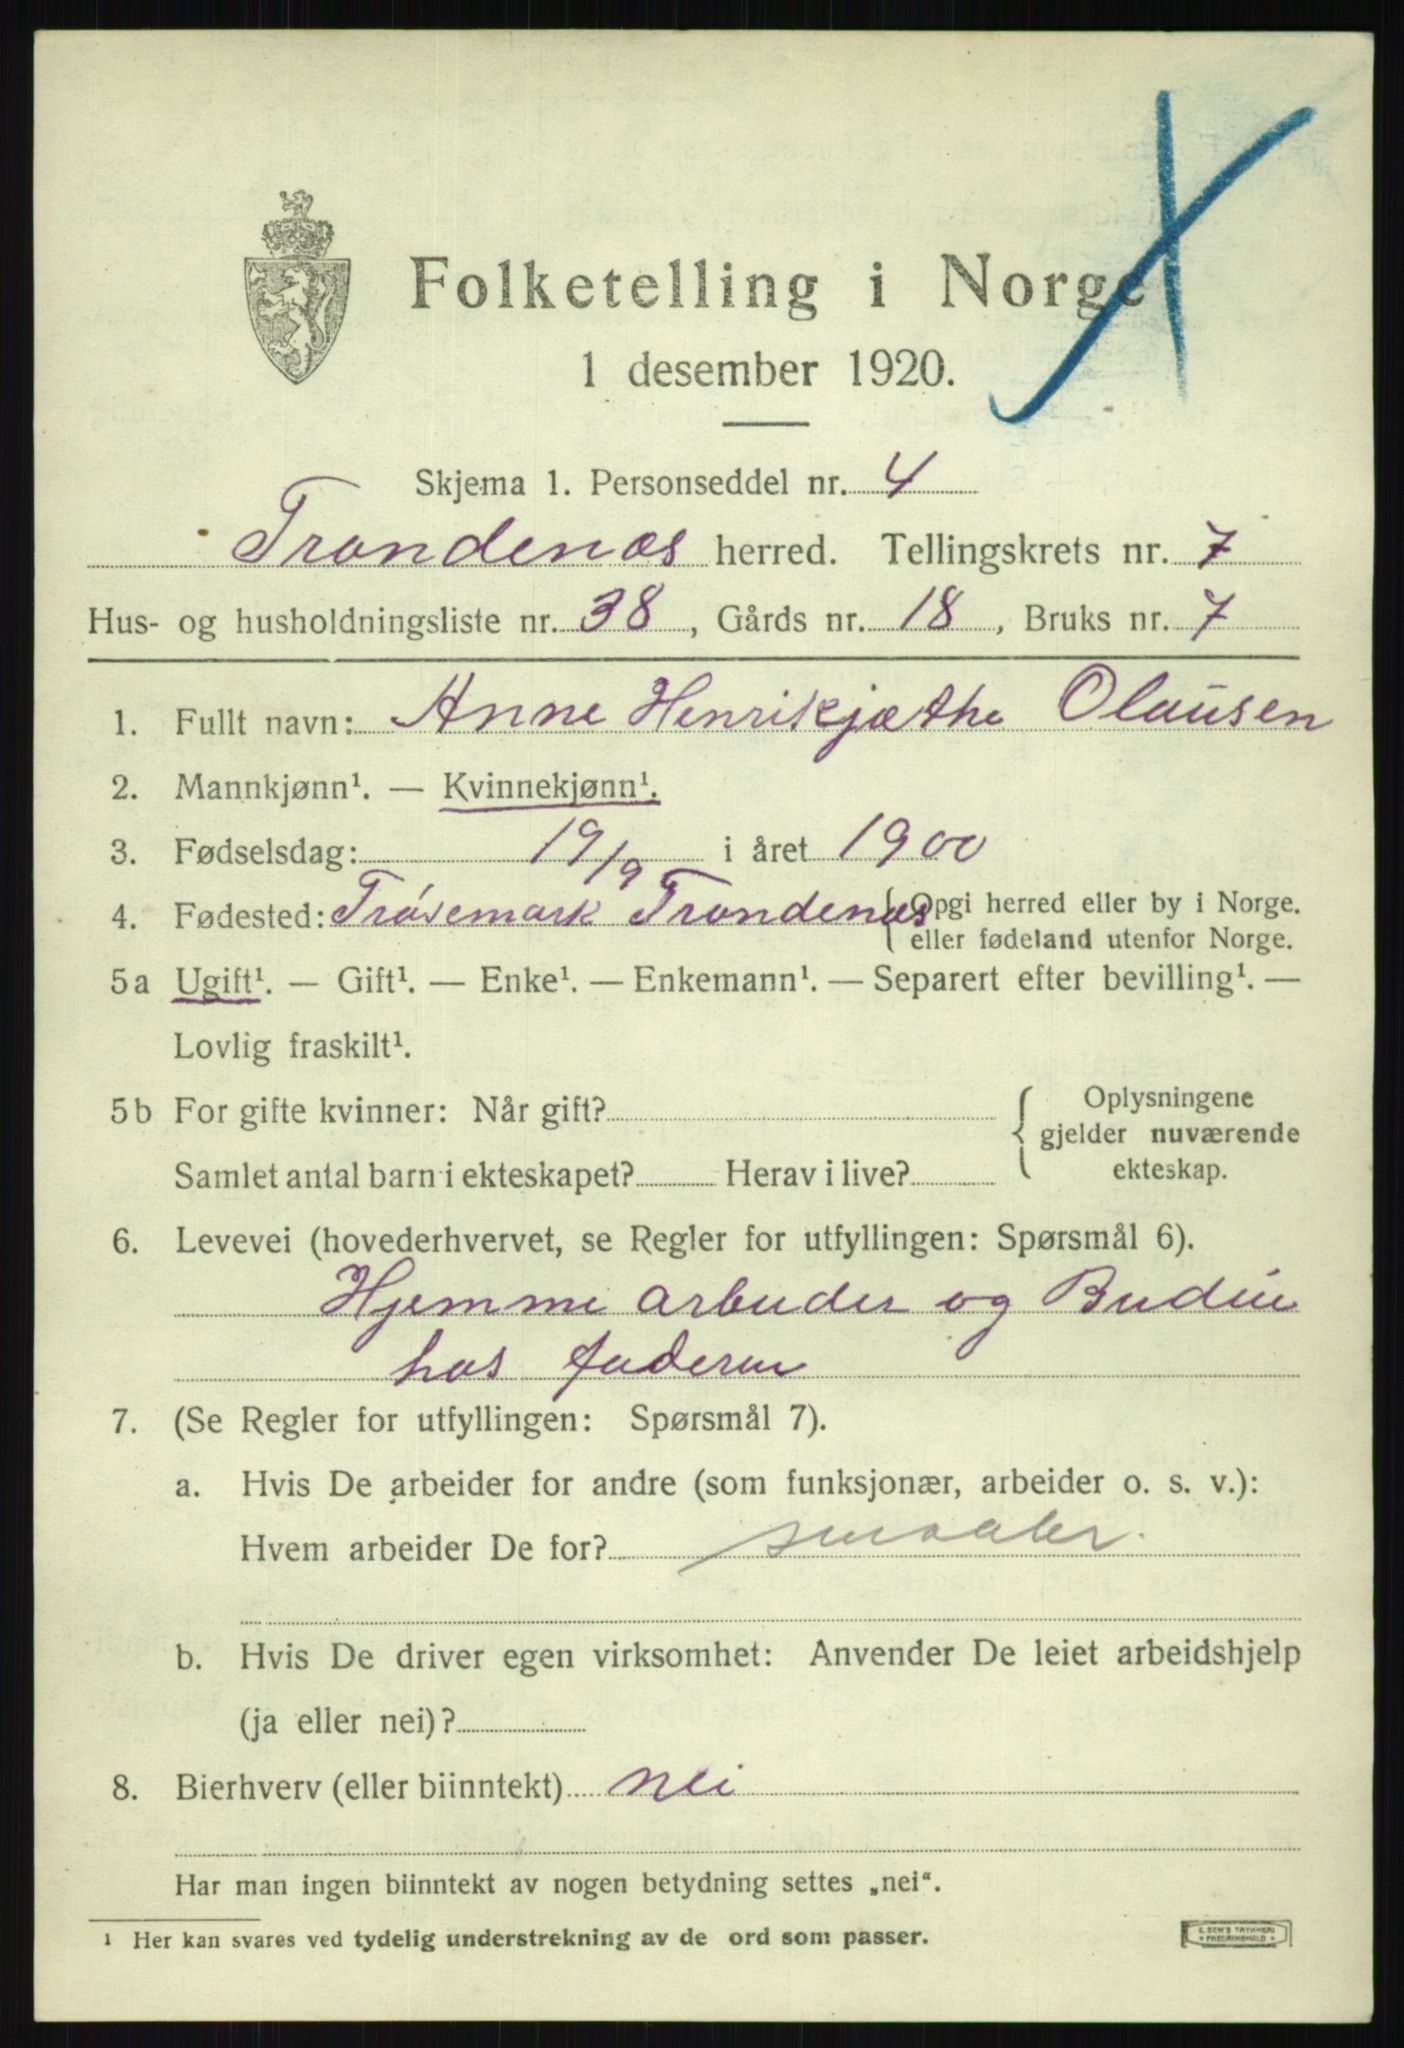 Folketelling i Norge
1 desember 1920.
Skjema 1. Personseddel nr. 4
Trondenæs herred. Tellingskrets nr. 7
Hus- og husholdningsliste nr. 38, Gårds nr. 18, Bruks nr. 7
1. Fullt navn: Anne Henrikjæthe Olausen
2. Mannkjønn¹. — Kvinnekjønn¹.
3. Fødselsdag: 19/9 i året 1900
4. Fødested: Trøsemark Trondenæs { Opgi herred eller by i Norge.
eller fødeland utenfor Norge.
5a Ugift¹. — Gift¹. — Enke¹. — Enkemann¹. — Separert efter bevilling¹. —
Lovlig fraskilt¹.
5b For gifte kvinner: Når gift? { Oplysningene
gjelder nuværende
Samlet antal barn i ekteskapet? Herav i live? ekteskap.
6. Levevei (hovederhvervet, se Regler for utfyllingen: Spørsmål 6).
Hjemme arbuder og Budeie
hos faderen
7. (Se Regler for utfyllingen: Spørsmål 7).
a. Hvis De arbeider for andre (som funksjonær, arbeider o. s. v.):
Hvem arbeider De for?
b. Hvis De driver egen virksomhet: Anvender De leiet arbeidshjelp
(ja eller nei)?
8. Bierhverv (eller biinntekt) nei
Har man ingen biinntekt av nogen betydning settes „nei“.
¹ Her kan svares ved tydelig understrekning av de ord som passer.
E. SEM'S TRYKKERI
FREDRIKSHALD